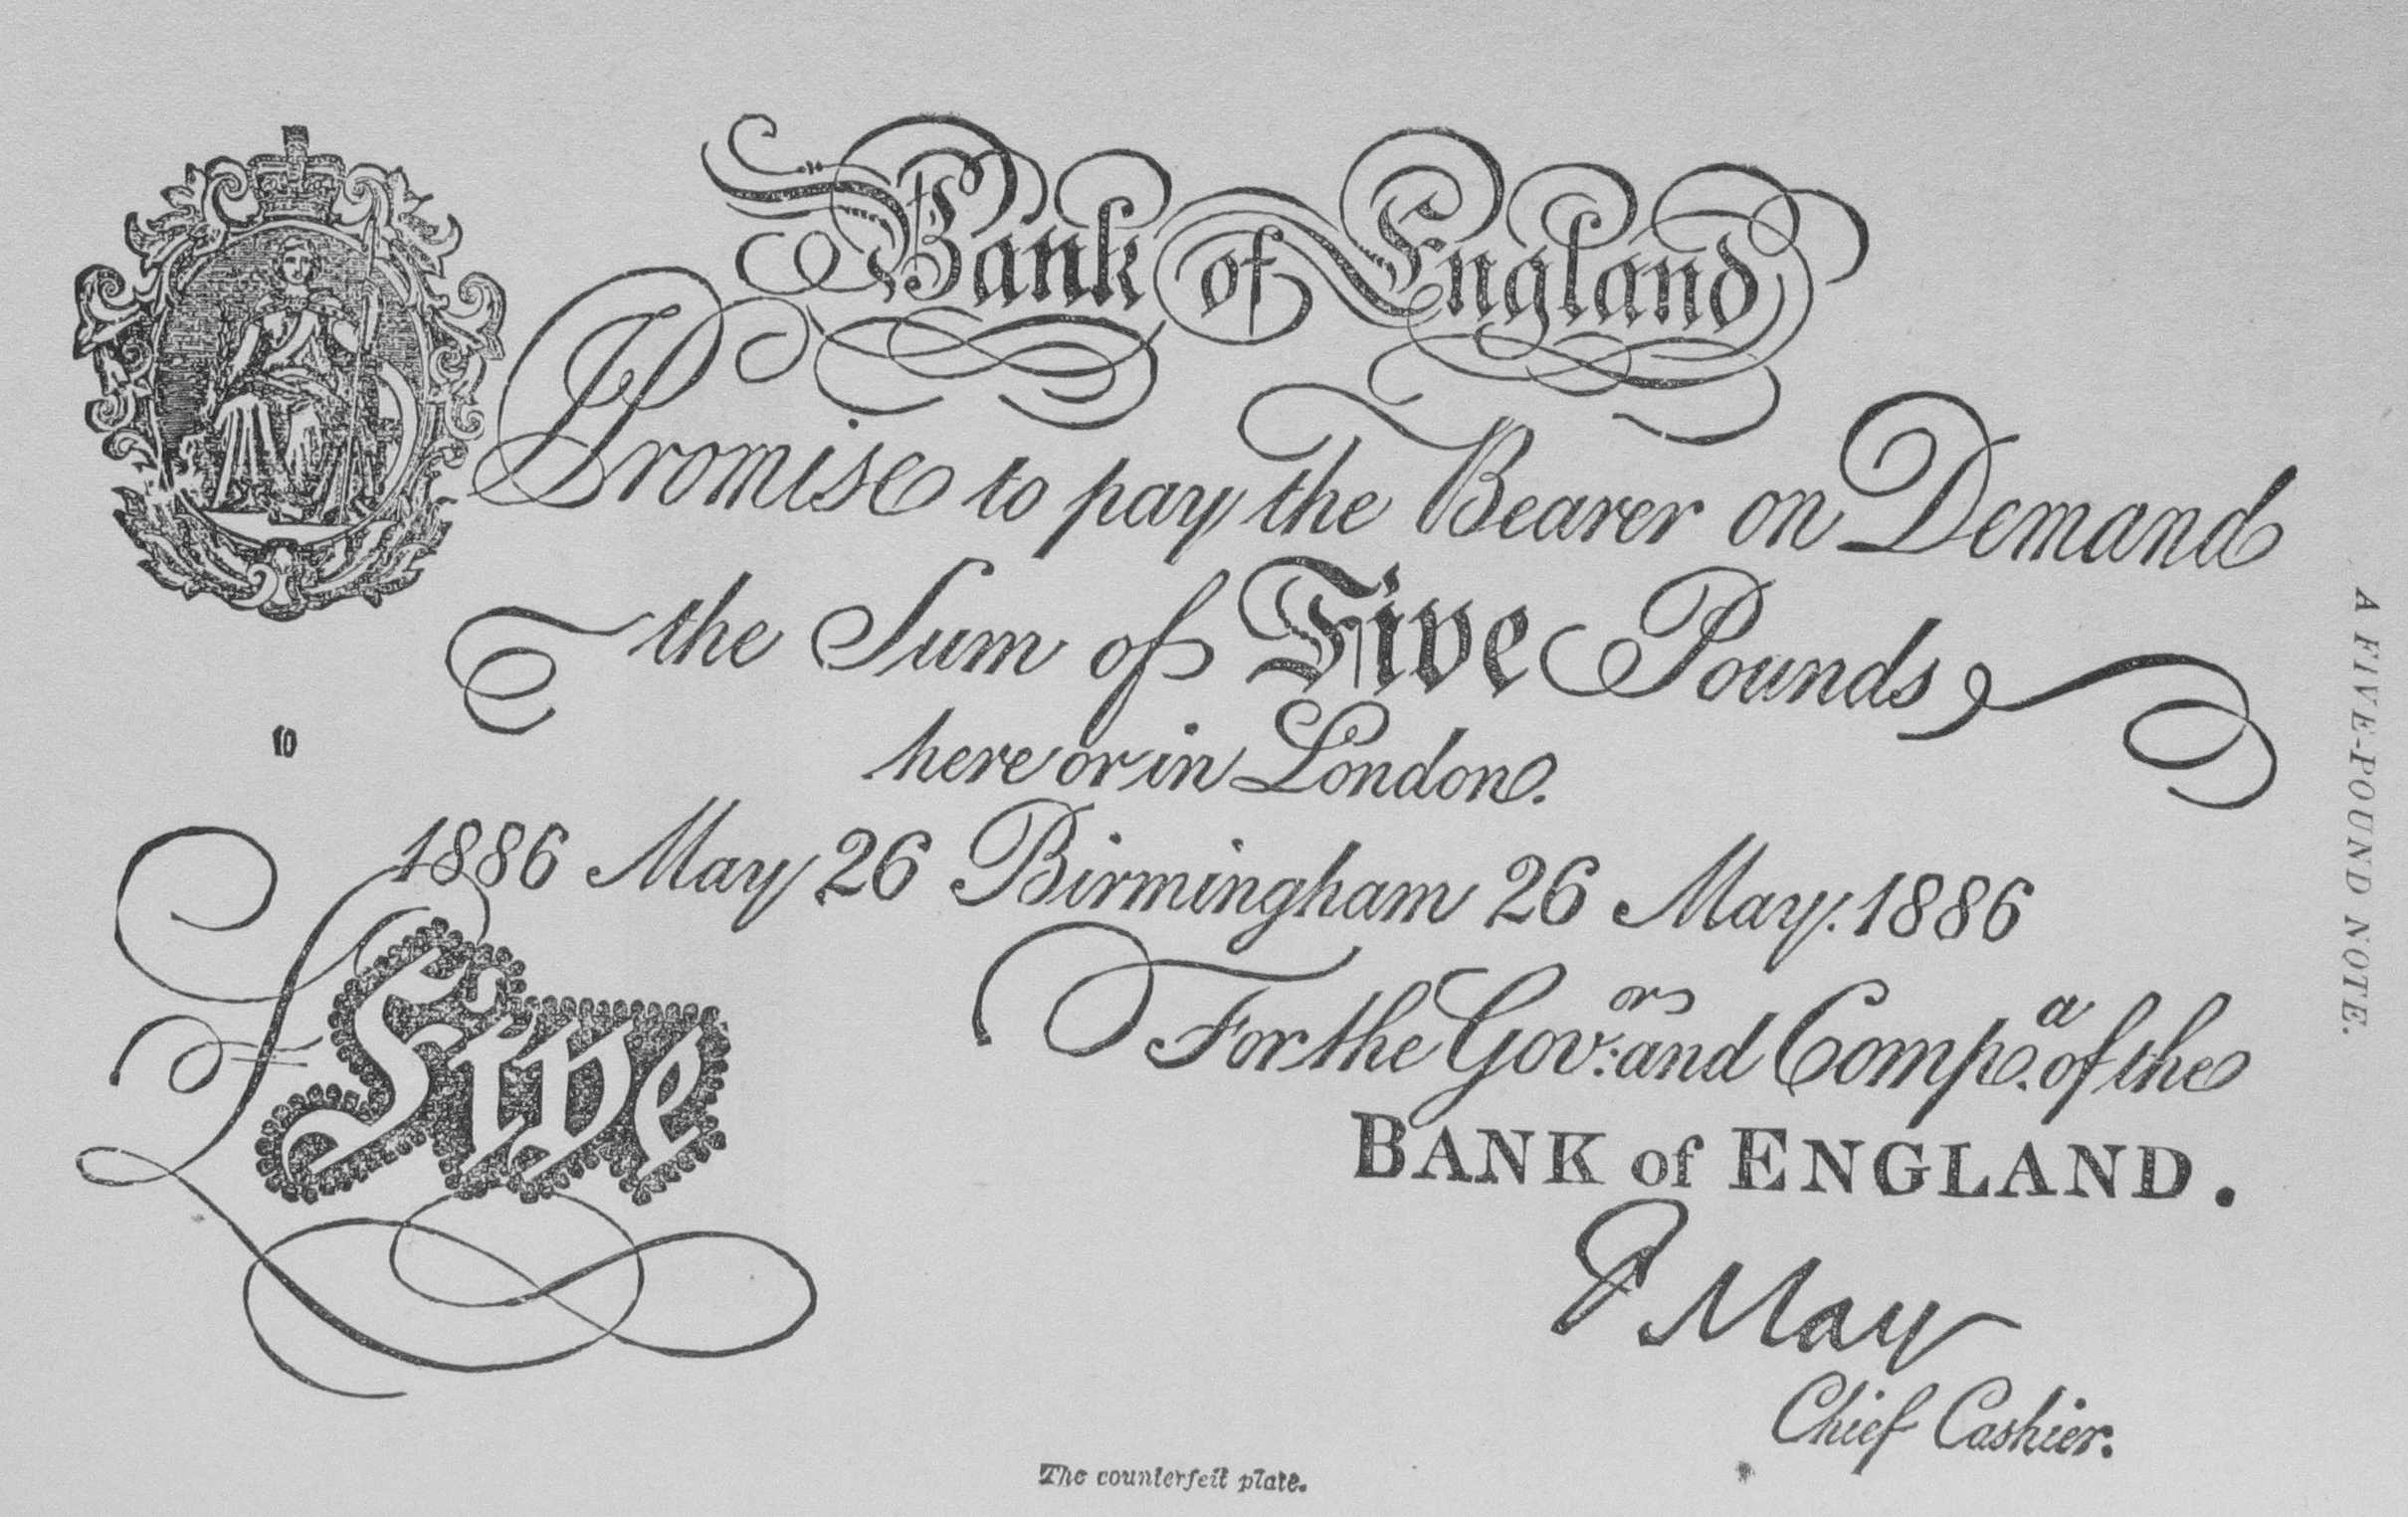 Bank of England
Promise to pay the Bearer on Demand
the Sum of Five Pounds
here or in London.
10
1886 May 26 Birmingham 26 May. 1886
For the Gov.ors and Comp.a of the
BANK of ENGLAND.
Five
F May
Chief Cashier.
The counterfeit plate.
A FIVE-POUND NOTE.